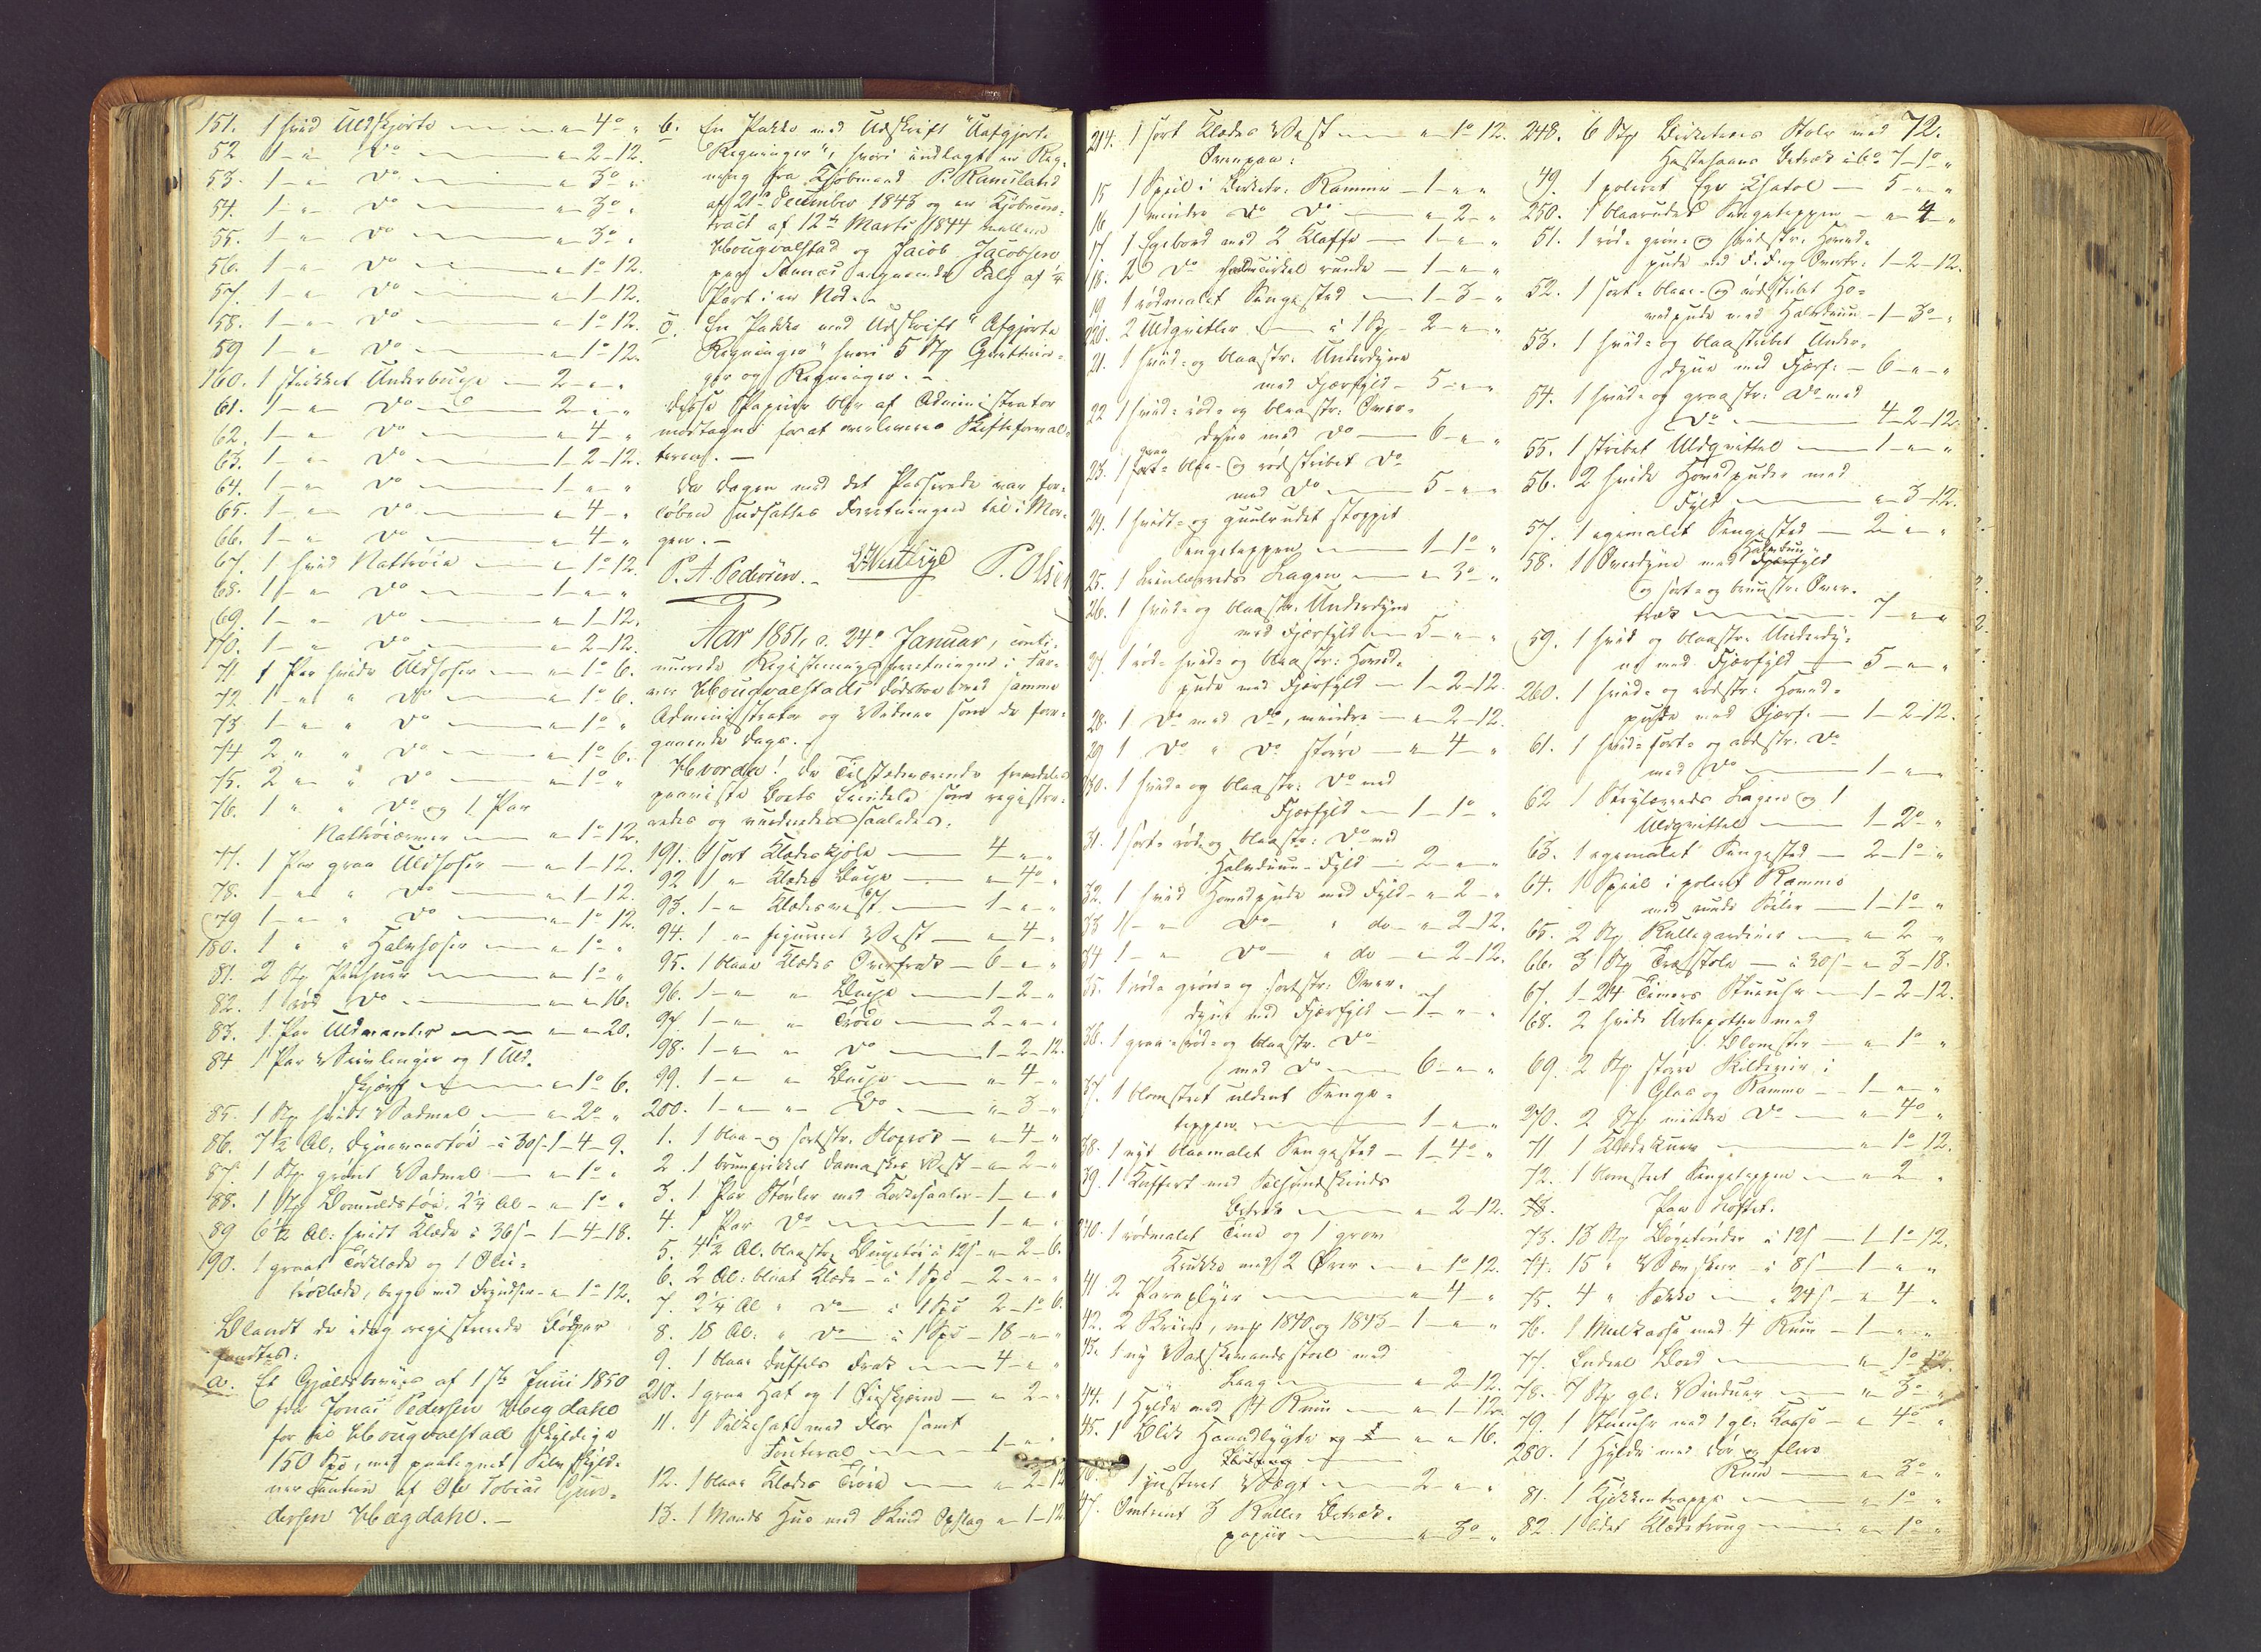 151. 1 hvid Uldskjorte — " - 4 - "
52 1 - " - Do — " - 2 - 12.
53. 1 - " - Do — " - 3 - "
54. 1 - " - Do — " - 3 - "
55. 1 - " - Do — " - 3 - "
56. 1 - " - Do — " - 1 - 12.
57. 1 - " - Do — " - 1 - 12.
58. 1 - " - Do — " - 1 - 12.
59 1 - " - Do — " - 1 - 12.
160. 1 strikket Underbuxe — 2 - " - "
61. 1 - " - Do — 2 - " - "
62. 1 - " - Do — " - 4 - "
63. 1 - " - Do — 1 - 2 - 12.
64. 1 - " - Do — 1 - " - "
65. 1 - " - Do — " - 4 - "
66. 1 - " - Do — " - 4 - "
67. 1 hvid Nattrøie — " - 1 - 12.
68. 1 - " - Do — 1 - " - "
69. 1 - " - Do — " - 1 - 12.
170. 1 - " - Do — " - 2 - 12.
71. 1 Par hvide Uldhoser — " - 1 - 6.
72 1 - " " Do — " - 1 - 6.
73 1 - " " Do — " - 1 - "
74 2 " " Do — " - 1 - 6.
75. 2 " " Do — " - 1 - "
76. 1 " " Do og 1 Par
Nattrøieærmer — " - 1 - 12.
77. 1 Par graa Uldhoser — " - 1 - 12.
78. 1 - " " Do — " - 1 - 12.
79 1 - " " Do — " - 1 - 12.
180. 1 " " Halvhoser — " - 1 - "
81. 2 Stk — " - 1 - "
82. 1 rød Do — " - " - 16.
83. 1 Par Uldvanter — " - " - 20.
84 1 Par og 1 Uld-
skjærf — " - 1 - 6.
85. 1 Stk hvidt Vadmel — " - 2 - "
86. 7½ Al: Dynevaarstøi - à 30 s - 1 - 4 - 9.
87. 1 Stk grønt Vadmel — " - 1 - "
88. 1 Stk Bomuldstøi, 2¼ Al - " - 1 - "
89 6½ Al: hvidt Klæde à 36 s - 1 - 4 - 18.
190. 1 graat Tørklæde og 1
tørklæde, begge med Fryndser - " - 1 - 12.
Blandt de idag registrerede
fandtes:
a. Et Gjældsbeviis af 1ste Juni 1850
fra Jonas Pedersen Hægdahl
for til Hougvalstad skyldige
150 Spd, med paategnet Selvskyld-
ner Caution af Ole Tobias Gun-
dersen Hægdahl. —
b. En Pakke med Udskrift "Uafgjorte
Regninger", hvori indlagt en Reg-
ning fra Kjøbmand P. Ramsland
af 21de December 1843 og en Kjøbecon-
tract af 12te Marts 1844 mellem
Hougvalstad og Jacob Jacobsen
paa angaaende Salg af ¼
Part i en Nod. -
c. En Pakke med Udskrift "Afgjorte
Regninger" hvori 5 Stk Qvitterin-
ger og Regninger. -
Disse Papirer blev af Administrator
modtagne for at overleveres Skifteforval-
teren. —
Da Dagen med det Passerede var for-
løben udsattes Forretningen til i Mor-
gen. —
P. A. Pedersen. - P. Olsen
Aar 1851, d. 24de Januar, conti-
nuerede Registreringsforretningen i Far-
ver Hougvalstads Dødsbo med samme
Administrator og Vidner som de fore-
gaaende Dage.
Hvorda! De Tilstedeværende fremdeles
paaviste Boets Eiendele som registre-
redes og vurderedes saaledes:
191. 1 sort Klædeskjole — 4 - " - "
92 1 " Klædes Buxe — " - 4 - "
93. 1 - " Klædesvest — 1 - " - "
94. 1 - " figureret Vest — " - 4 - "
95. 1 blaae Klædes Overfrak — 6 - " - "
96. 1 - " " Buxe — 1 - 2 - "
97. 1 - " " Trøie — 2 - " - "
98. 1 - " " Do — 1 - 2 - 12.
99. 1 - " " Buxe — " - 4 - "
200. 1 - " " Do — " - 3 - "
1. 1 blaa- og sortstr. Sloprok — " - 4 - "
2. 1 bruunprikket Damaskes Vest - " - 2 - "
3. 1 Par Støvler med Korkesaaler - 1 - " - "
4. 1 Par Do — 1 - " - "
5. 4½ Al. blaastr. Buxetøi à 12 s - " - 2 - 6.
6. 2 Al: blaat Klæde - à 1 Spd - 2 - " - "
7. 2¼ Al " Do - à 1 Spd 2 - 1 - 6.
8. 18 Al: " Do - à 1 Spd - 18 - " - "
9. 1 blaae Duffels Frak — 4 - " - "
210. 1 graa Hat og 1 — " - 2 - "
11. 1 Silkehat med Flor samt
Fouteral — 1 - " - "
12. 1 blaae Klædes Trøie — " - 2 - 12
13. 1 Mands Hue med Skind Opslag " - 1 - 12
214. 1 sort Klædes Vest — " - 1 - 12.
Ovenpaa:
15 1 Speil i Birketr: Ramme — 1 - " - "
16 1 mindre Do Do — " - 2 - "
17. 1 Egebord med 2 Klaffe — 1 - " - "
18. 2 Do halvcirkel runde — 1 - " - "
19 1 rødmalet Sengested — 1 - 3 - "
220. 2 Uldqvitler — à 1 Sp - 2 - " - "
21. 1 hvid- og blaastr: Underdyne
med Fjærfyld - 5 - " - "
22 1 hvid- rød- og blaastr: Over-
dyne med Do — 6 - " - "
graa
23. 1 sort- blaa- og rødstribet Do
med Do — 5 - " - "
24. 1 hvidt- og guulrudet stoppet
Sengeteppe — 1 - 1 - "
25. 1 Lærreds Lagen — " - 3 - "
26. 1 hvid- og blaastr. Underdyne
med Fjærfyld — 5 - " - "
27. 1 rød- hvid- og blaastr: Hoved-
pude med Fjærfyld — 1 - 2 - 12.
28. 1 Do med Do, mindre — " - 2 - 12.
29 1 Do " Do større — " - 4 - "
30. 1 hvid- og blaastr: Do med
Fjærfyld — 1 - 1 - "
31. 1 sort- rød- og blaastr: Do med
Halvduun-Fyld — 2 - " - "
32. 1 hvid Hovedpude med Fyld - " - 2 - "
33 1 - " Do " do - " - 2 - 12.
34 1 - " Do " do - " - 2 - 12.
35. 1 rød- grøn- og sortstr: Over-
dyne med Fjærfyld — 7 - " - "
36. 1 graa- rød- og blaastr. Do
med Do — 6 - " - "
37. 1 blomstret uldent Senge-
teppe — 1 - " - "
38. 1 nyt blaamalet Sengested — 1 - 4 - "
39. 1 Kuffert med Sælhundskinds
Betræk — " - 2 - 12.
240. 1 rødmalet Tine og 1 graa
Krukke med 2 Ører — " - 1 - 12.
41 2 Paraplyer — " - 4 - "
42. 2 Skrin, mrkt 1840 og 1843 - 1 - " - "
43. 1 ny Vadskevandsstoel med
Laag — " - 2 - 12.
44. 1 Hylde med 14 Rum — " - 1 - 12.
45. 1 Blik Haandlygte — " - " - 16.
46. 1 justeret Vægt — 2 - " - "
47. Omtrent 3 Ruller Betræk-
papiir — " - 3 - "
72.
248. 6 Stk Birketræes Stole med
Hestehaars Betræk à 6 - 7 - 1 - "
49. 1 poleret Ege Chatol — 5 - " - "
250. 1 blaarudet Sengeteppe — " - 4 - "
51. 1 rød- grøn- og hvidstr. Hoved-
pude med F. F. og Overtr: 1 - 2 - 12.
52. 1 sort- blaae- og rødstribet Ho-
vedpude med Halvduun - 1 - 3 - "
53. 1 hvid- og blaastribet Under-
dyne med Fjærf: — 6 - " - "
54. 1 hvid- og graastr: Do med
Do — 4 - 2 - 12.
55. 1 stribet Uldqvittel — 1 - " - "
56. 2 hvide Hovedpuder med
Fyld — " - 3 - 12.
57. 1 egemalet Sengested — 2 - " - "
58. 1 Overdyne med Halvduun
og sort- og bruunstr. Over-
træk — 7 - " - "
59. 1 hvid og blaastr. Underdy-
ne med Fjærfyld — 5 - " - "
260. 1 hvid- og rødstr: Hoved-
pude med Fjærf. — 1 - 2 - 12.
61. 1 hvid- sort- og rødstr. Do
med Do — 1 - " - "
62 1 Strylærreds Lagen og 1
Uldqvittel — 1 - 2 - "
63. 1 egemalet Sengested — 2 - 1 - "
64. 1 Speil i poleret Ramme
med runde Søiler — 1 - 1 - "
65. 2 Stk Rullegardiner — " - 2 - "
66. 3 Stk Træstole — à 30 s - " - 3 - 18.
67. 1 - 24 Timers Stueuhr — 1 - 2 - 12.
68. 2 hvide Urtepotter med
Blomster — " - 1 - "
69. 2 Stk større Skilderier i
Glas og Ramme — 1 - " - "
270. 2 Stk mindre Do — " - 4 - "
71 1 Klædekurv — " - 1 - 12.
72. 1 blomstret Sengeteppe — " - 2 - "
Paa Loftet.
73. 13 Stk Bøgetønder à 12 s — 1 - 1 - 12.
74. 15 " — à 8 s — 1 - " - "
75. 4 " Sække — à 24 s - " - 4 - "
76. 1 Meelkasse med 4 Rum — 1 - " - "
77. Endeel Bord — " - 1 -
78. 7 Stk gl: Vinduer — " - 3 - "
79. 1 Stueuhr med 1 gl: Kasse — " - 4 - "
280. 1 Hylde med Dør og flere
Rum — " - 3 - "
81. 1 Kjøkkentrappe — " - 1 - "
82. 1 lidet Klædetraug — " - 1 - "